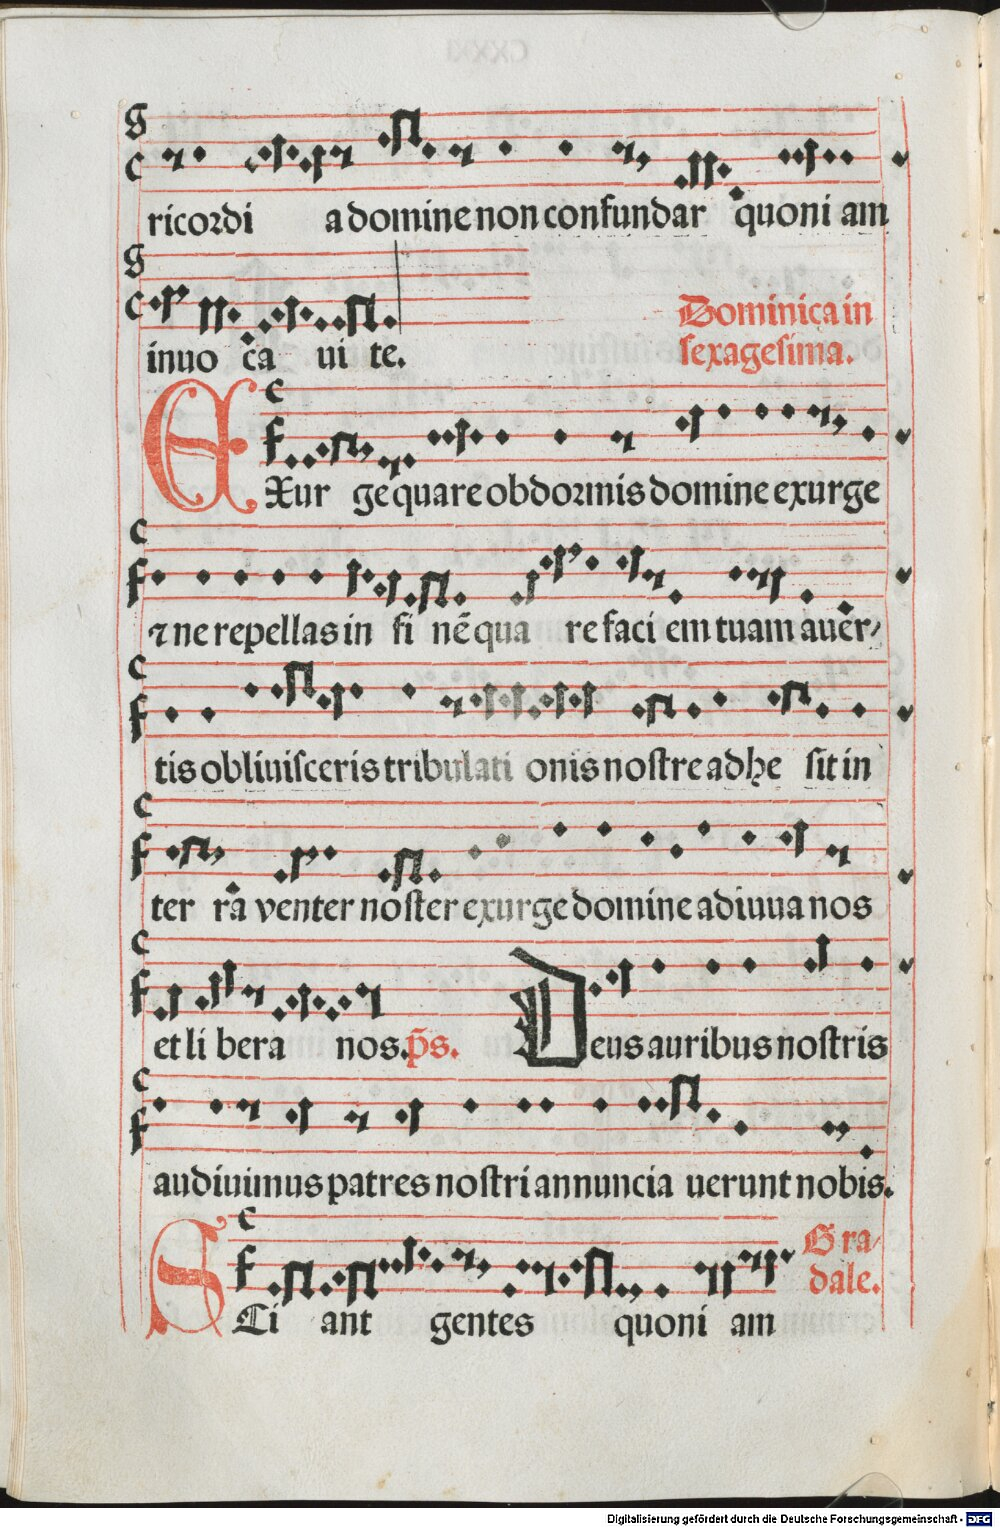 ricordi a domine non confundar quoni am
inuo ca ui te.
Dominica in
sexagesima.
EXur ge quare obdormis domine exurge
⁊ ne repellas in fi nē qua re faci em tuam auer⸗
tis obliuisceris tribulati onis nostre adhe sit in
ter ra venter noster exurge domine adiuua nos
et li bera nos. p̄s. Deus auribus nostris
audiuimus patres nostri annuncia uerunt nobis.
Gra⸗
dale.
SCi ant gentes quoni am
Digitalisierung gefördert durch die Deutsche Forschungsgemeinschaft - DFG